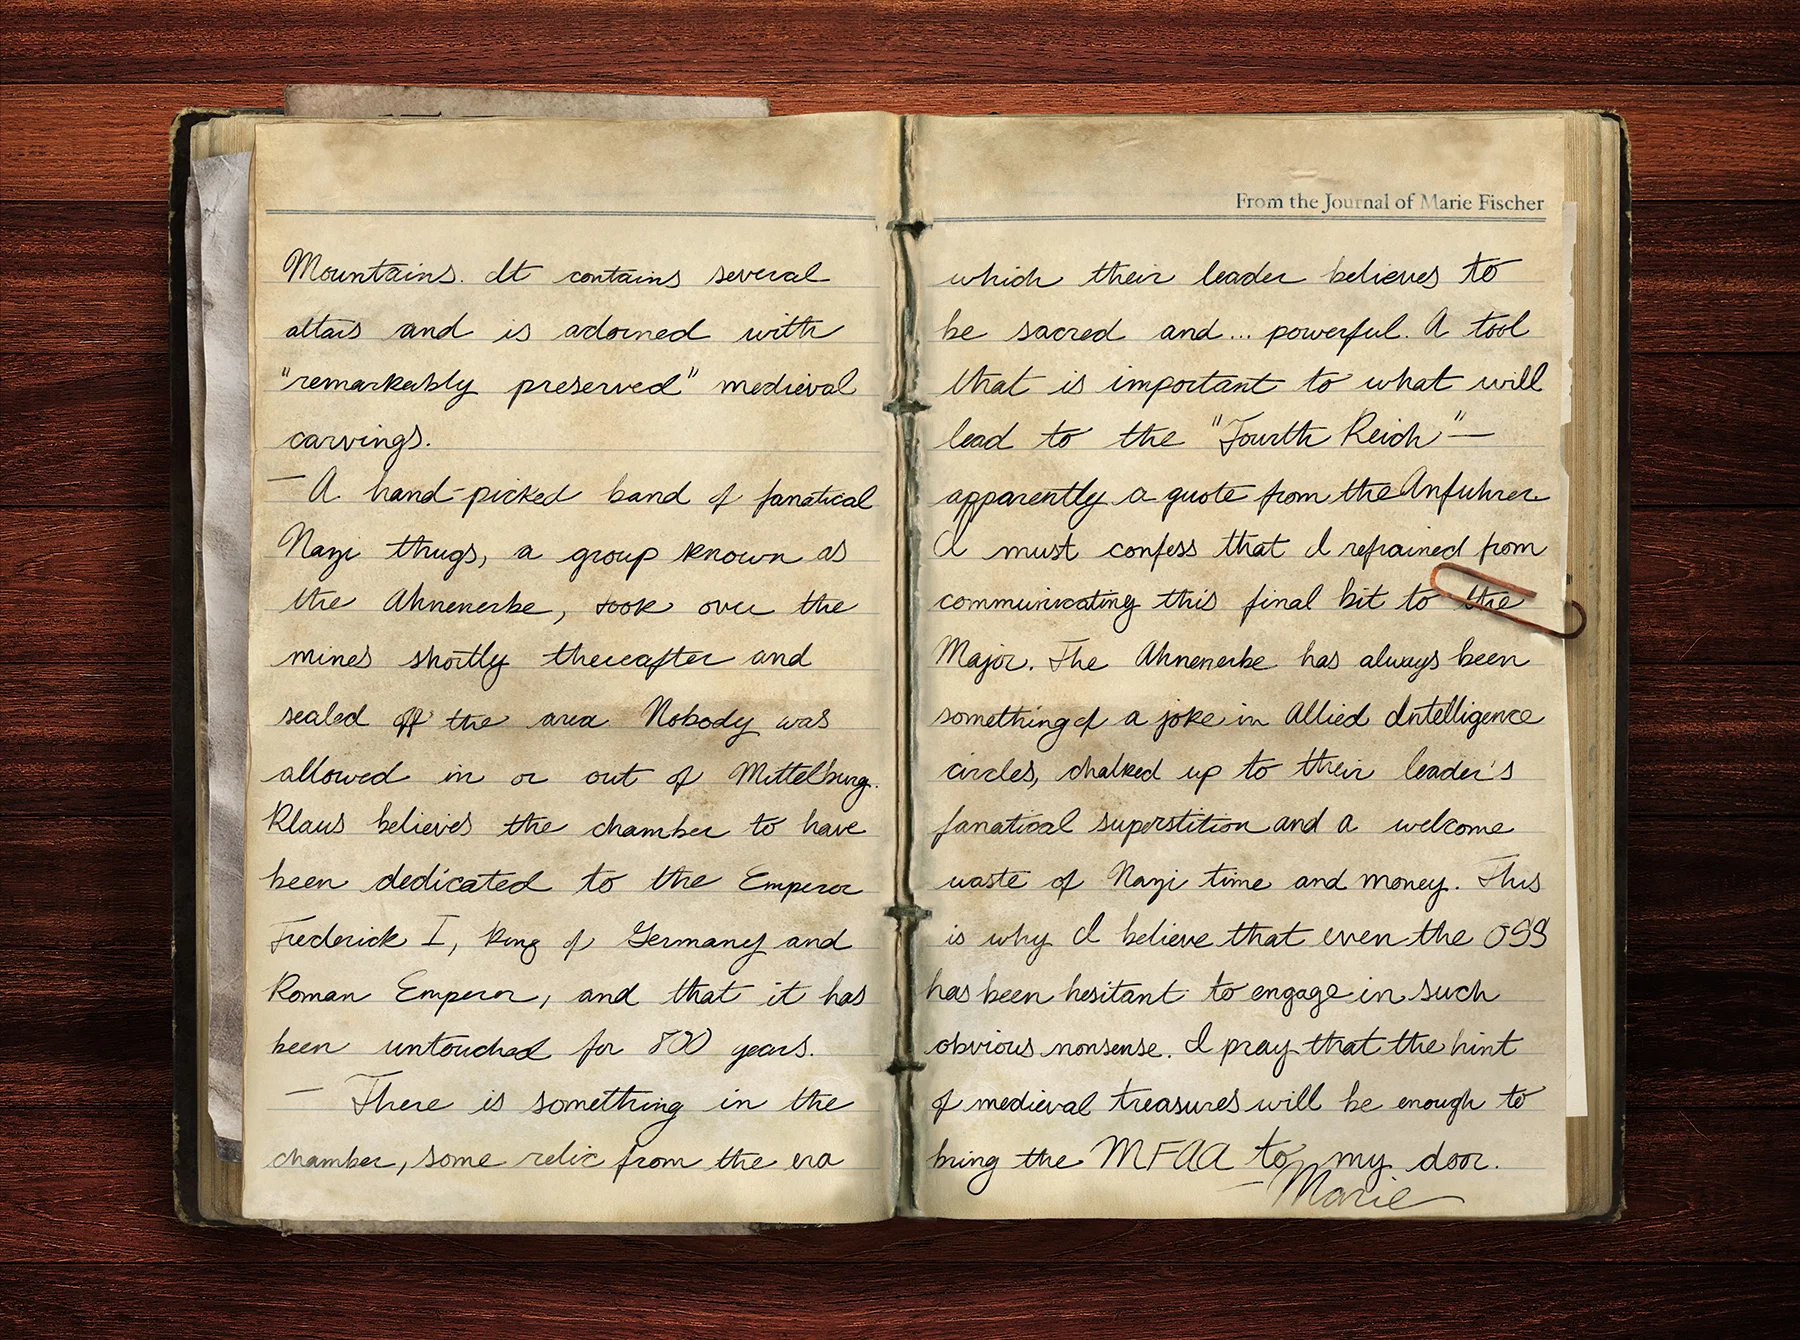 Mountains. It contains several
altars and is adorned with
"remarkably preserved" medieval
carvings.
— A hand-picked band of fanatical
Nazi thugs, a group known as
the Ahnenerbe, took over the
mines shortly thereafter and
sealed off the area. Nobody was
allowed in or out of Mittelburg.
Klaus believes the chamber to have
been dedicated to the Emperor
Frederick I, king of Germany and
Roman Emperor, and that it has
been untouched for 800 years.
— There is something in the
chamber, some relic from the era
From the Journal of Marie Fischer
which their leader believes to
be sacred and... powerful. A tool
that is important to what will
lead to the "Fourth Reich"—
apparently a quote from the Anfuhrer.
I must confess that I refrained from
communicating this final bit to the
Major. The Ahnenerbe has always been
something of a joke in Allied Intelligence
circles, chalked up to their leader's
fanatical superstition and a welcome
waste of Nazi time and money. This
is why I believe that even the OSS
has been hesitant to engage in such
obvious nonsense. I pray that the hint
of medieval treasures will be enough to
bring the MFAA to my door.
— Marie